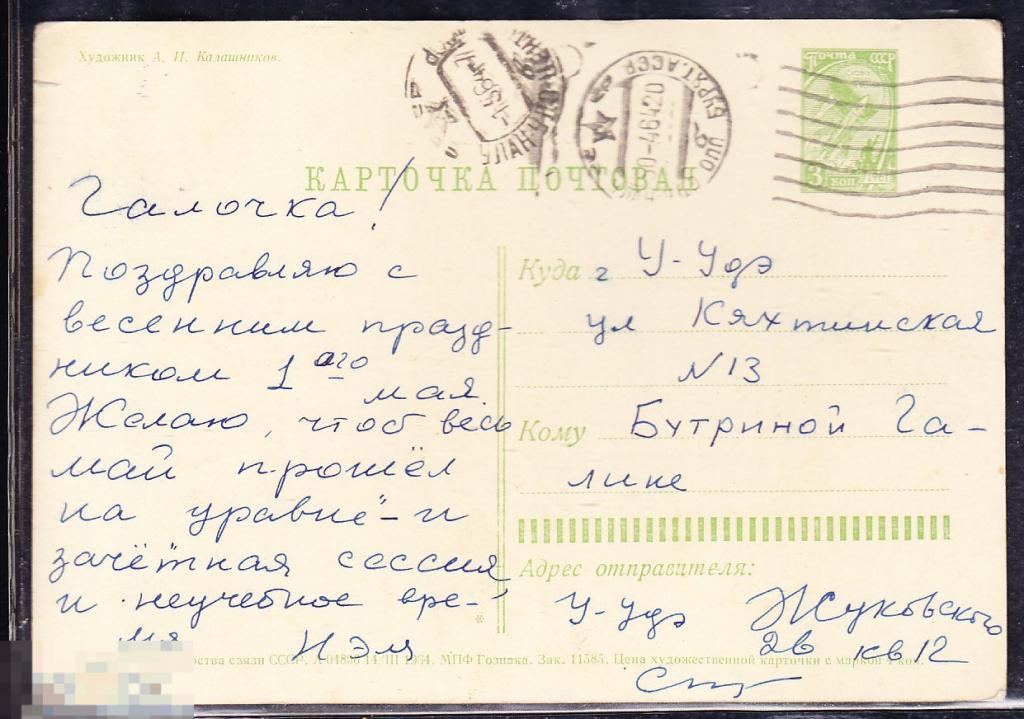 Художник А. И. Калашников.
ПОЧТА СССР
3 КОП 1961
УЛАН-УДЭ
БУРЯТ. АССР
КАРТОЧКА ПОЧТОВАЯ
Галочка!
Поздравляю с
весенним празд-
ником 1ого мая.
Желаю, чтоб весь
май прошёл
на уровне - и
зачётная сессия
и неучебное вре-
мя
Нэля
Куда г У-Удэ
ул Кяхтинская
N 13
Кому Бутриной Га-
лине
Адрес отправителя:
У-Удэ Жуковского
2в кв 12
связи СССР. А 04806 14/III 1964. МПФ Гознака. Зак. 11585. Цена художественной карточки с маркой 4 коп.